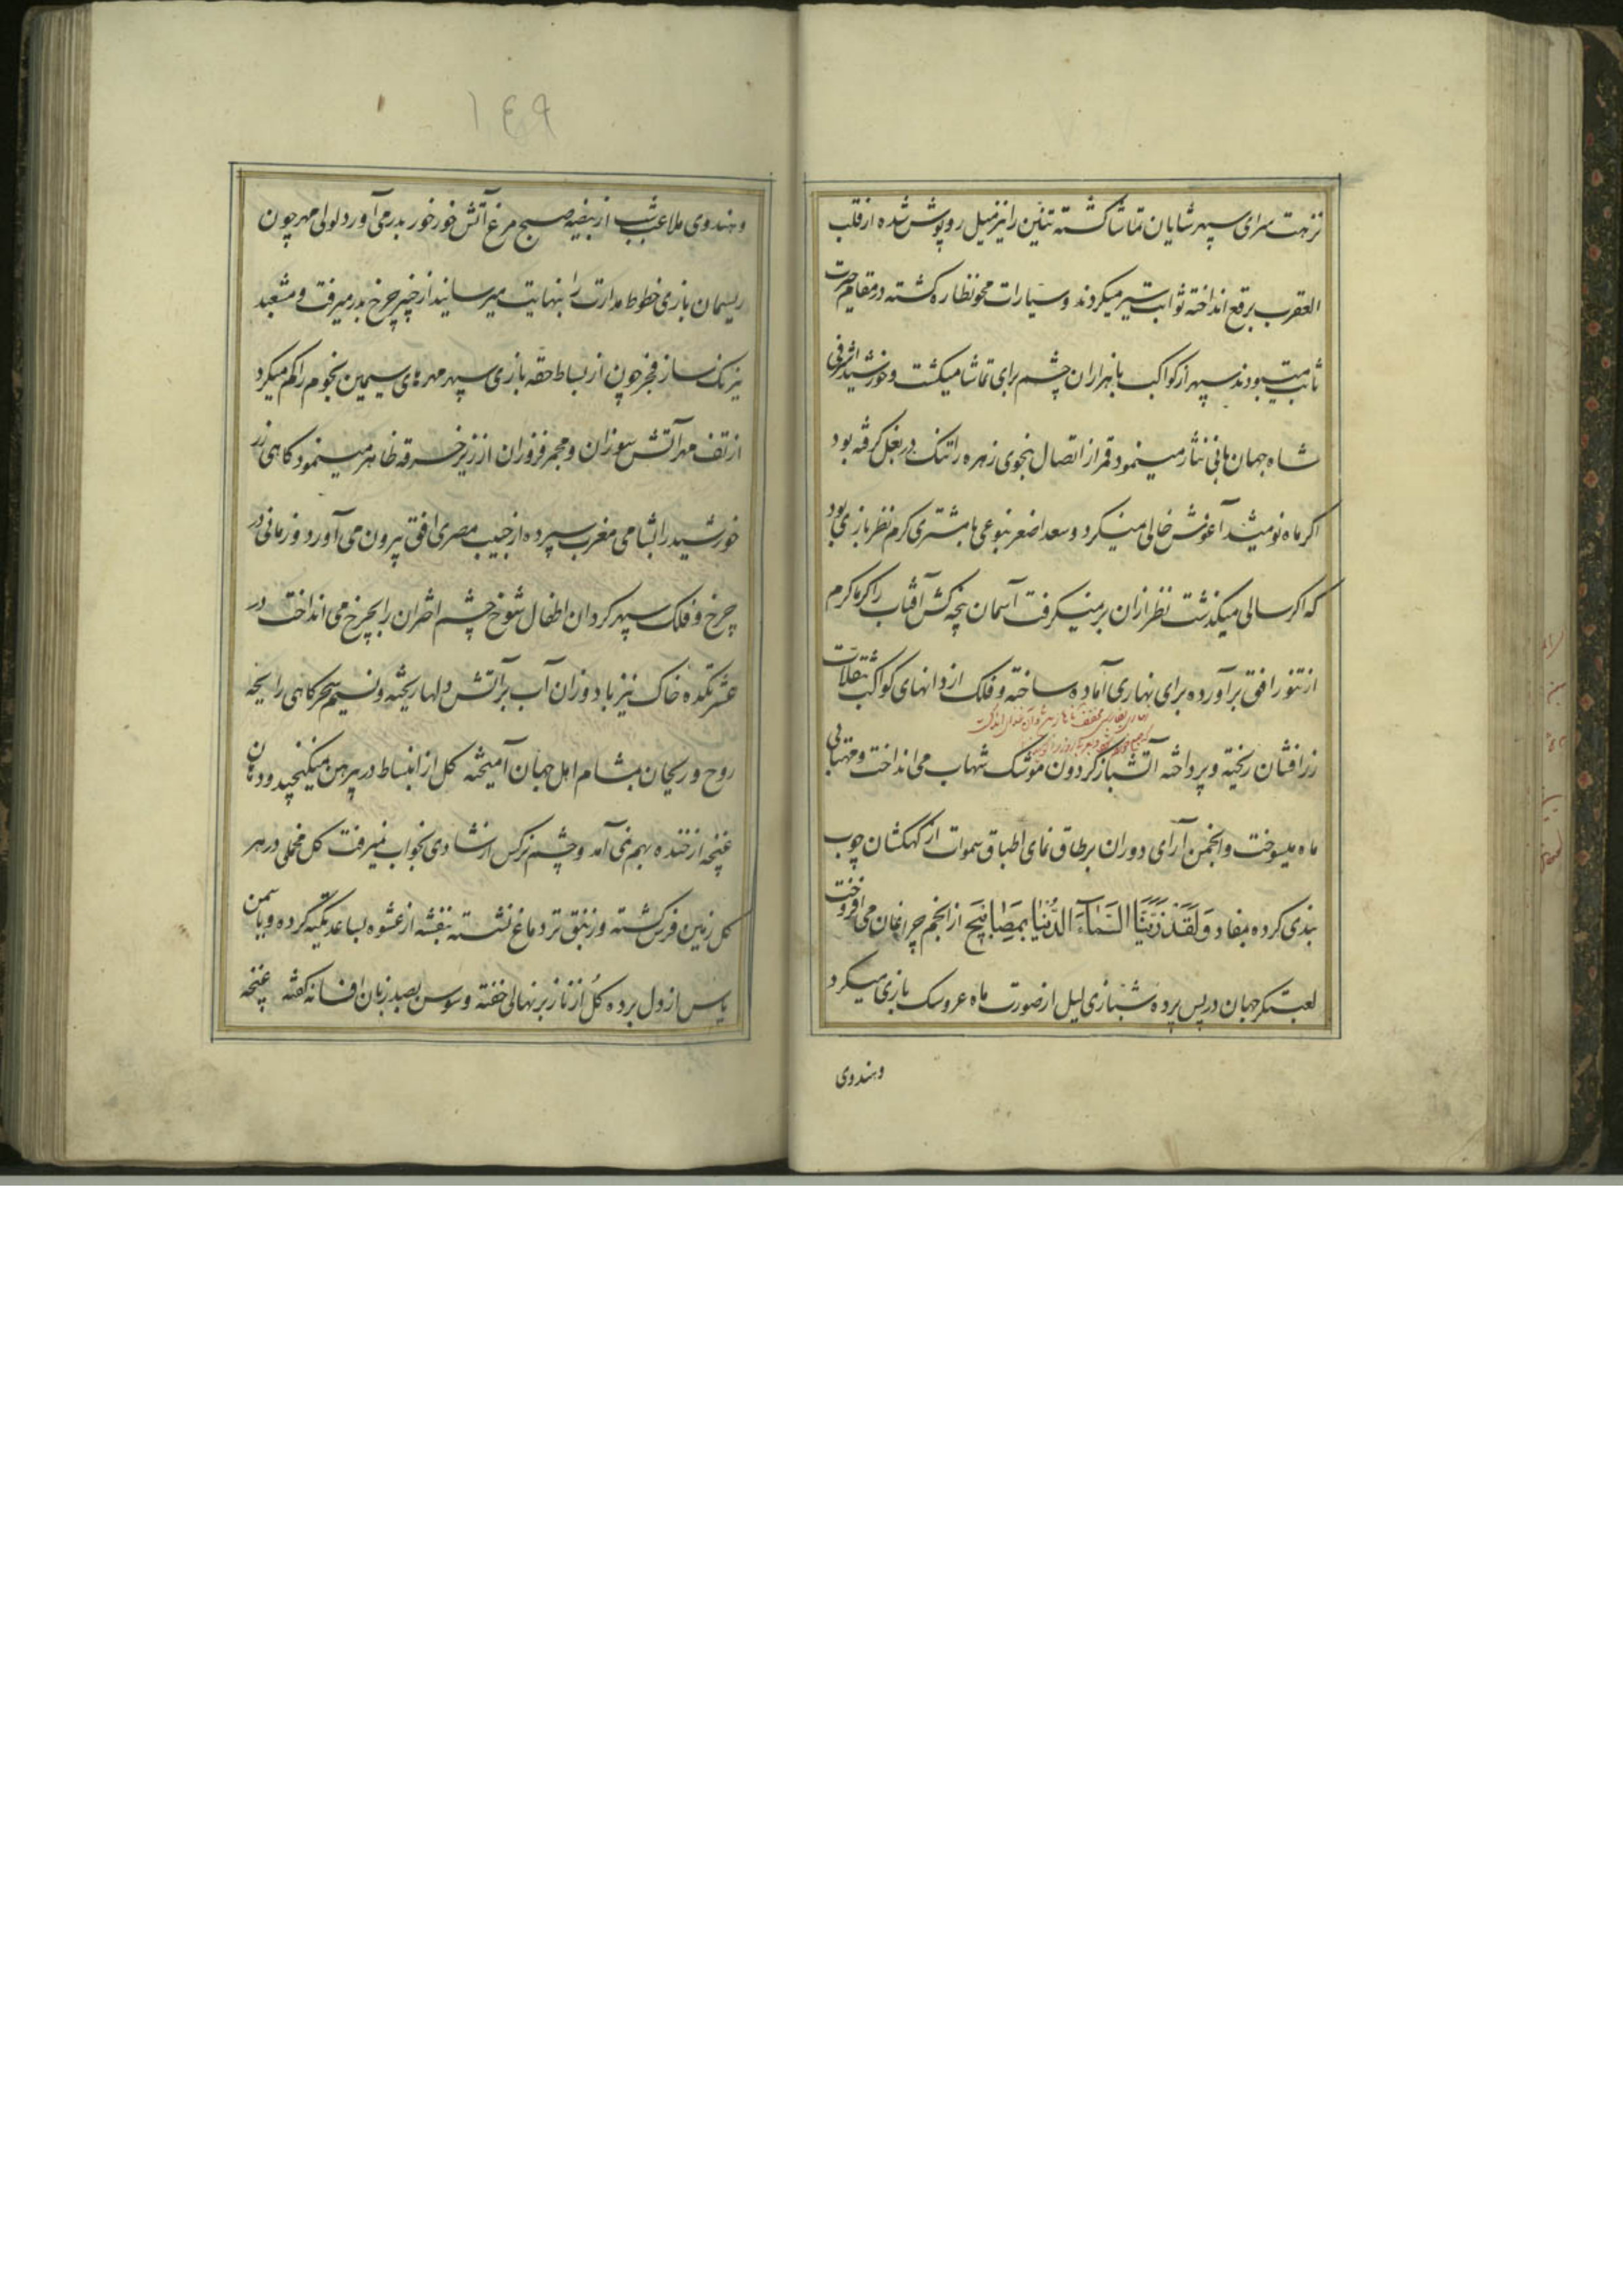 نزهت سرای سپهر شایان تماشا کشته تنین را نیز میل روپوش شده از قلب
العقرب برقع انداخته ثوابت سیر میکردند و سیارات محو نظاره کشته در مقام حیرت
ثابت میبودند سپهر از کواکب با هزاران چشم برای تماشا میکشت و خورشید اشرفی
شاه جهان بانی نثار مینمود قمر از اتصال نحوی زهره را تنک در بغل کرفته بود
اکر ماه نو میشد آغوش خالی مینکرد و سعد اصغر بنوعی با مشتری کرم نظر بازی بود
که اکر سالی میکذشت نظر ازان بر نمیکرفت آسمان پنجه کش آفتاب را کرما کرم
از تنور افق برآورده برای نهاری آماده ساخته و فلک از دانهای کواکب تنقلات
زر افشان ریخته و پرداخته آتشباز کردون موشک شهاب می انداخت و مهتابی
ماه میسوخت و انجمن آرای دوران بر طاق نمای اطباق سموات از کهکشان چوب
بندی کرده بمفاد وَلَقَدْ زَیَّنَّا السَّمَآءَ الدُّنْیَا بِمَصَابِیْحَ از انجم چراغان می افروخت
لعبتکر جهان در پس پرده شببازی لیل از صورت ماه عروسک بازی میکرد
وهندوی
۱۴۹
وهندوی ملاعب شب از بیضه صبح مرغ آتش خور خور بدر می آورد لولی مهر چون
ریسمان بازی خطوط مدارت را بنهایت میرسانید از چنبر چرخ بدر میرفت و مشعبد
نیرنک ساز فجر چون از بساط حقه بازی سپهر مهرهای سیمین نجوم را کم میکرد
از تف مهر آتش سوزان و مجمر فروزان از زیر خرقه ظاهر مینمود کاهی زر
خورشید را بشامی مغرب سپرده از جیب مصری افق بیرون می آورد و زمانی در
چرخ و فلک سپهر کردان اطفال شوخ چشم اختران را بچرخ می انداخت در
عشرتکده خاک نیز باد وزان آب بر آتش دلها ریخته و نسیم سحرکاهی رایحه
روح و ریحان بمشام اهل جهان آمیخته کل از انبساط در پیرهن نمیکنجید و دهان
غنچه از خنده بهم نمی آمد و چشم نرکس از شادی بخواب نمیرفت کل مخملی در هر
کل زمین فرش کشته و زنبق تر دماغ نشسته بنفشه از عشوه بساعد تکیه کرده و یاسمن
یاس از دل برده کُل از ناز بر نهالی خفته و سوسن بصد زبان افسانه کفته غنچه